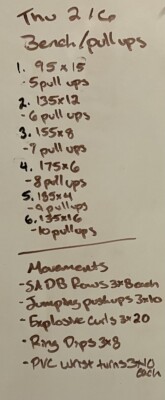 Thu 2/6
Bench/pull ups
1. 95x15
-5 pull ups
2. 135x12
-6 pull ups
3. 155x8
-7 pull ups
4. 175x6
-8 pull ups
5. 185x4
-9 pull ups
6. 135x16
-10 pull ups
Movements
-SADB Rows 3x8 each
-Jumping pushups 3x10
-Explosive Curls 3x20
-Ring Dips 3x8
-PVC wrist turns 3x10
each